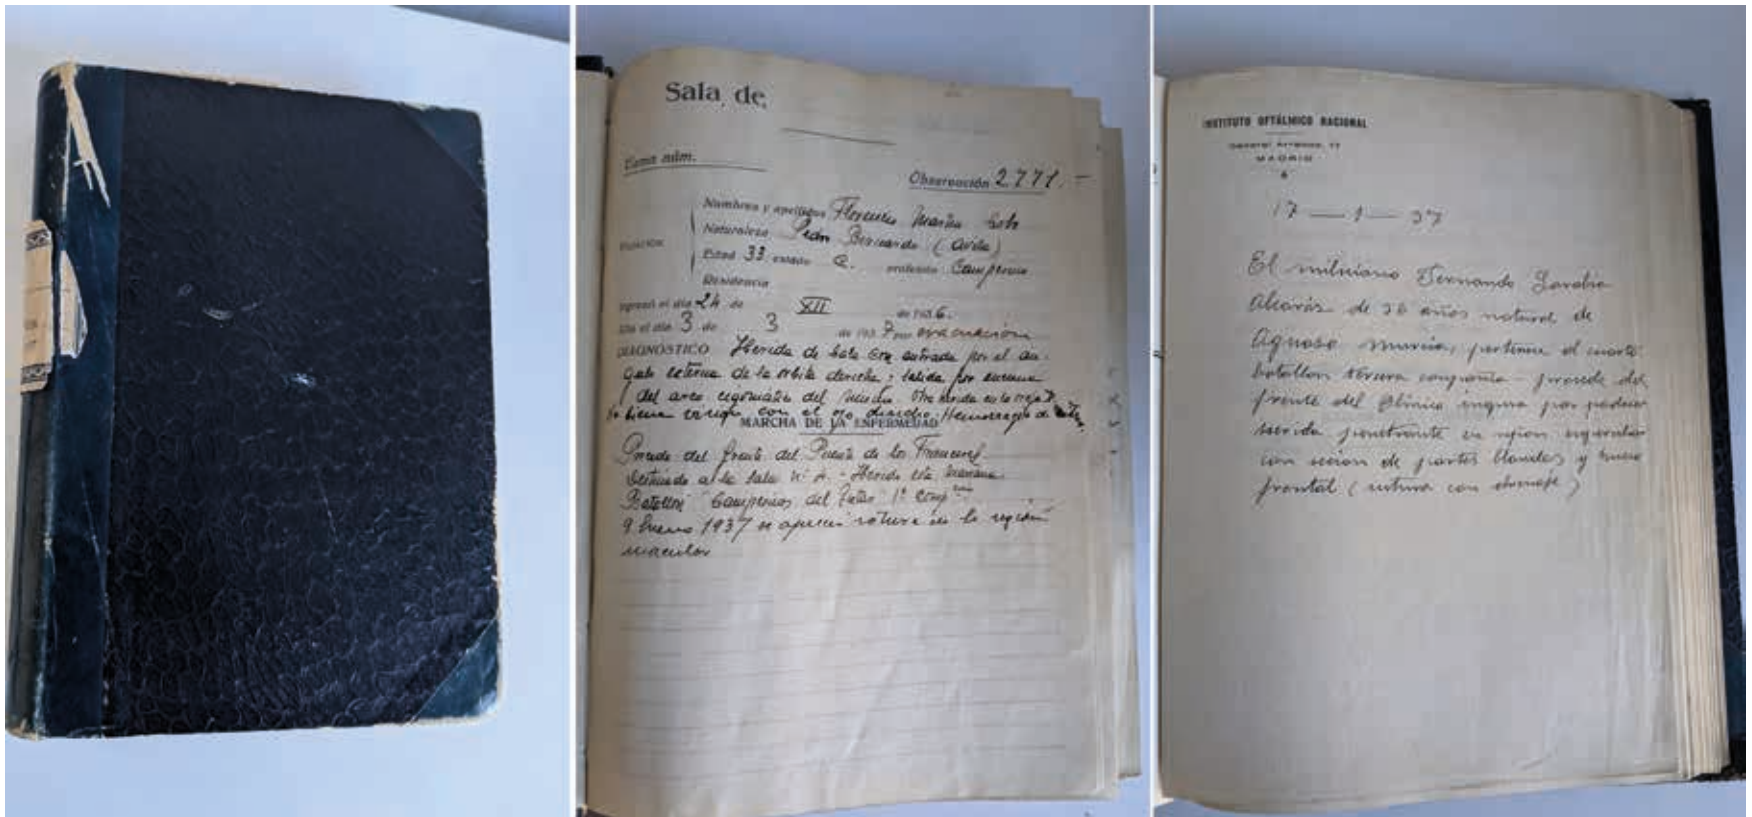 Sala de
Cama núm.
Observación 2.771.-
Nombres y apellidos Florencio Martín
Naturaleza Pedro Bernardo (Avila)
FILIACIÓN
Edad 33 estado C. profesión Campesino
Residencia
Ingresó el día 24 de XII de 1936.
día 3 de 3 de 1937 por evacuación
DIAGNÓSTICO Herida de bala con entrada por el án-
gulo externo de la orbita derecha y salida por encima
del arco cigomático del mismo. Otra herida en la oreja
No tiene visión con el ojo derecho. Hemorragia de
MARCHA DE LA ENFERMEDAD
Procede del frente del Puente de los Franceses.
Destinado a la Sala Herido esta mañana
Batallón Campesinos del 1ª Comp
9 Enero 1937 se aprecia rotura en la región
macular
INSTITUTO OFTÁLMICO NACIONAL
General Arrando, 17
MADRID
17 — 1 — 37
El miliciano Fernando Sarabia
Alcaráz de 36 años natural de
murcia, pertenece al cuarto
batallon tercera compañia - procede del
frente del Clínico ingresa por padecer
herida penetrante en region
con sección de partes blandas y hueso
frontal (sutura con drenaje)